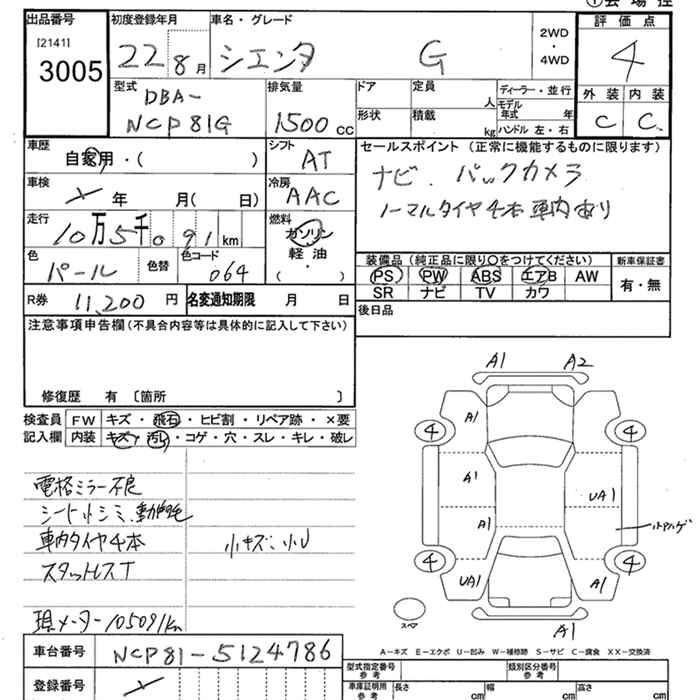 ①会場控
出品番号 初度登録年月 車名・グレード
[2141]
3005
22 8月 シエンタ G
2WD
・
4WD
評価点
4
外装 内装
C C
型式
DBA-
NCP81G
排気量
1500 cc
ドア 定員 人
形状 積載 kg
ディーラー・並行
モデル年式 年
ハンドル 左・右
車歴
自家用・( )
シフト
AT
車検
年 月( 日)
冷房
AAC
走行
10万5千091 km
燃料
ガソリン
軽油
( )
色
パール
色替
色コード
064
R券 11,200 円
名変通知期限 月 日
セールスポイント (正常に機能するものに限ります)
ナビ. バックカメラ
ノーマルタイヤ4本車内あり
装備品 (純正品に限り○をつけてください) 新車保証書
PS PW ABS エアB AW 有・無
SR ナビ TV カワ
後日品
注意事項申告欄(不具合内容等は具体的に記入して下さい)
修復歴 有 〔箇所 〕
検査員 FW キズ・飛石・ヒビ割・リペア跡・×要
記入欄 内装 キズ・汚れ・コゲ・穴・スレ・キレ・破レ
電格ミラー不良
シート小シミ、動物毛
車内タイヤ4本 小キズ、小U
スタットレスT
現メーター105091Km
車台番号 NCP81-5124786
登録番号
A1 A2
4 A1 4
A1 UA1
A1 小ハゲ
4 UA1 A1 4
スペア A1
A-キズ E-エクボ U-凹み W-補修跡 S-サビ C-腐食 XX-交換済
型式指定番号 参考 類別区分番号 参考
車庫証明用 参考 長さ cm 幅 cm 高さ cm